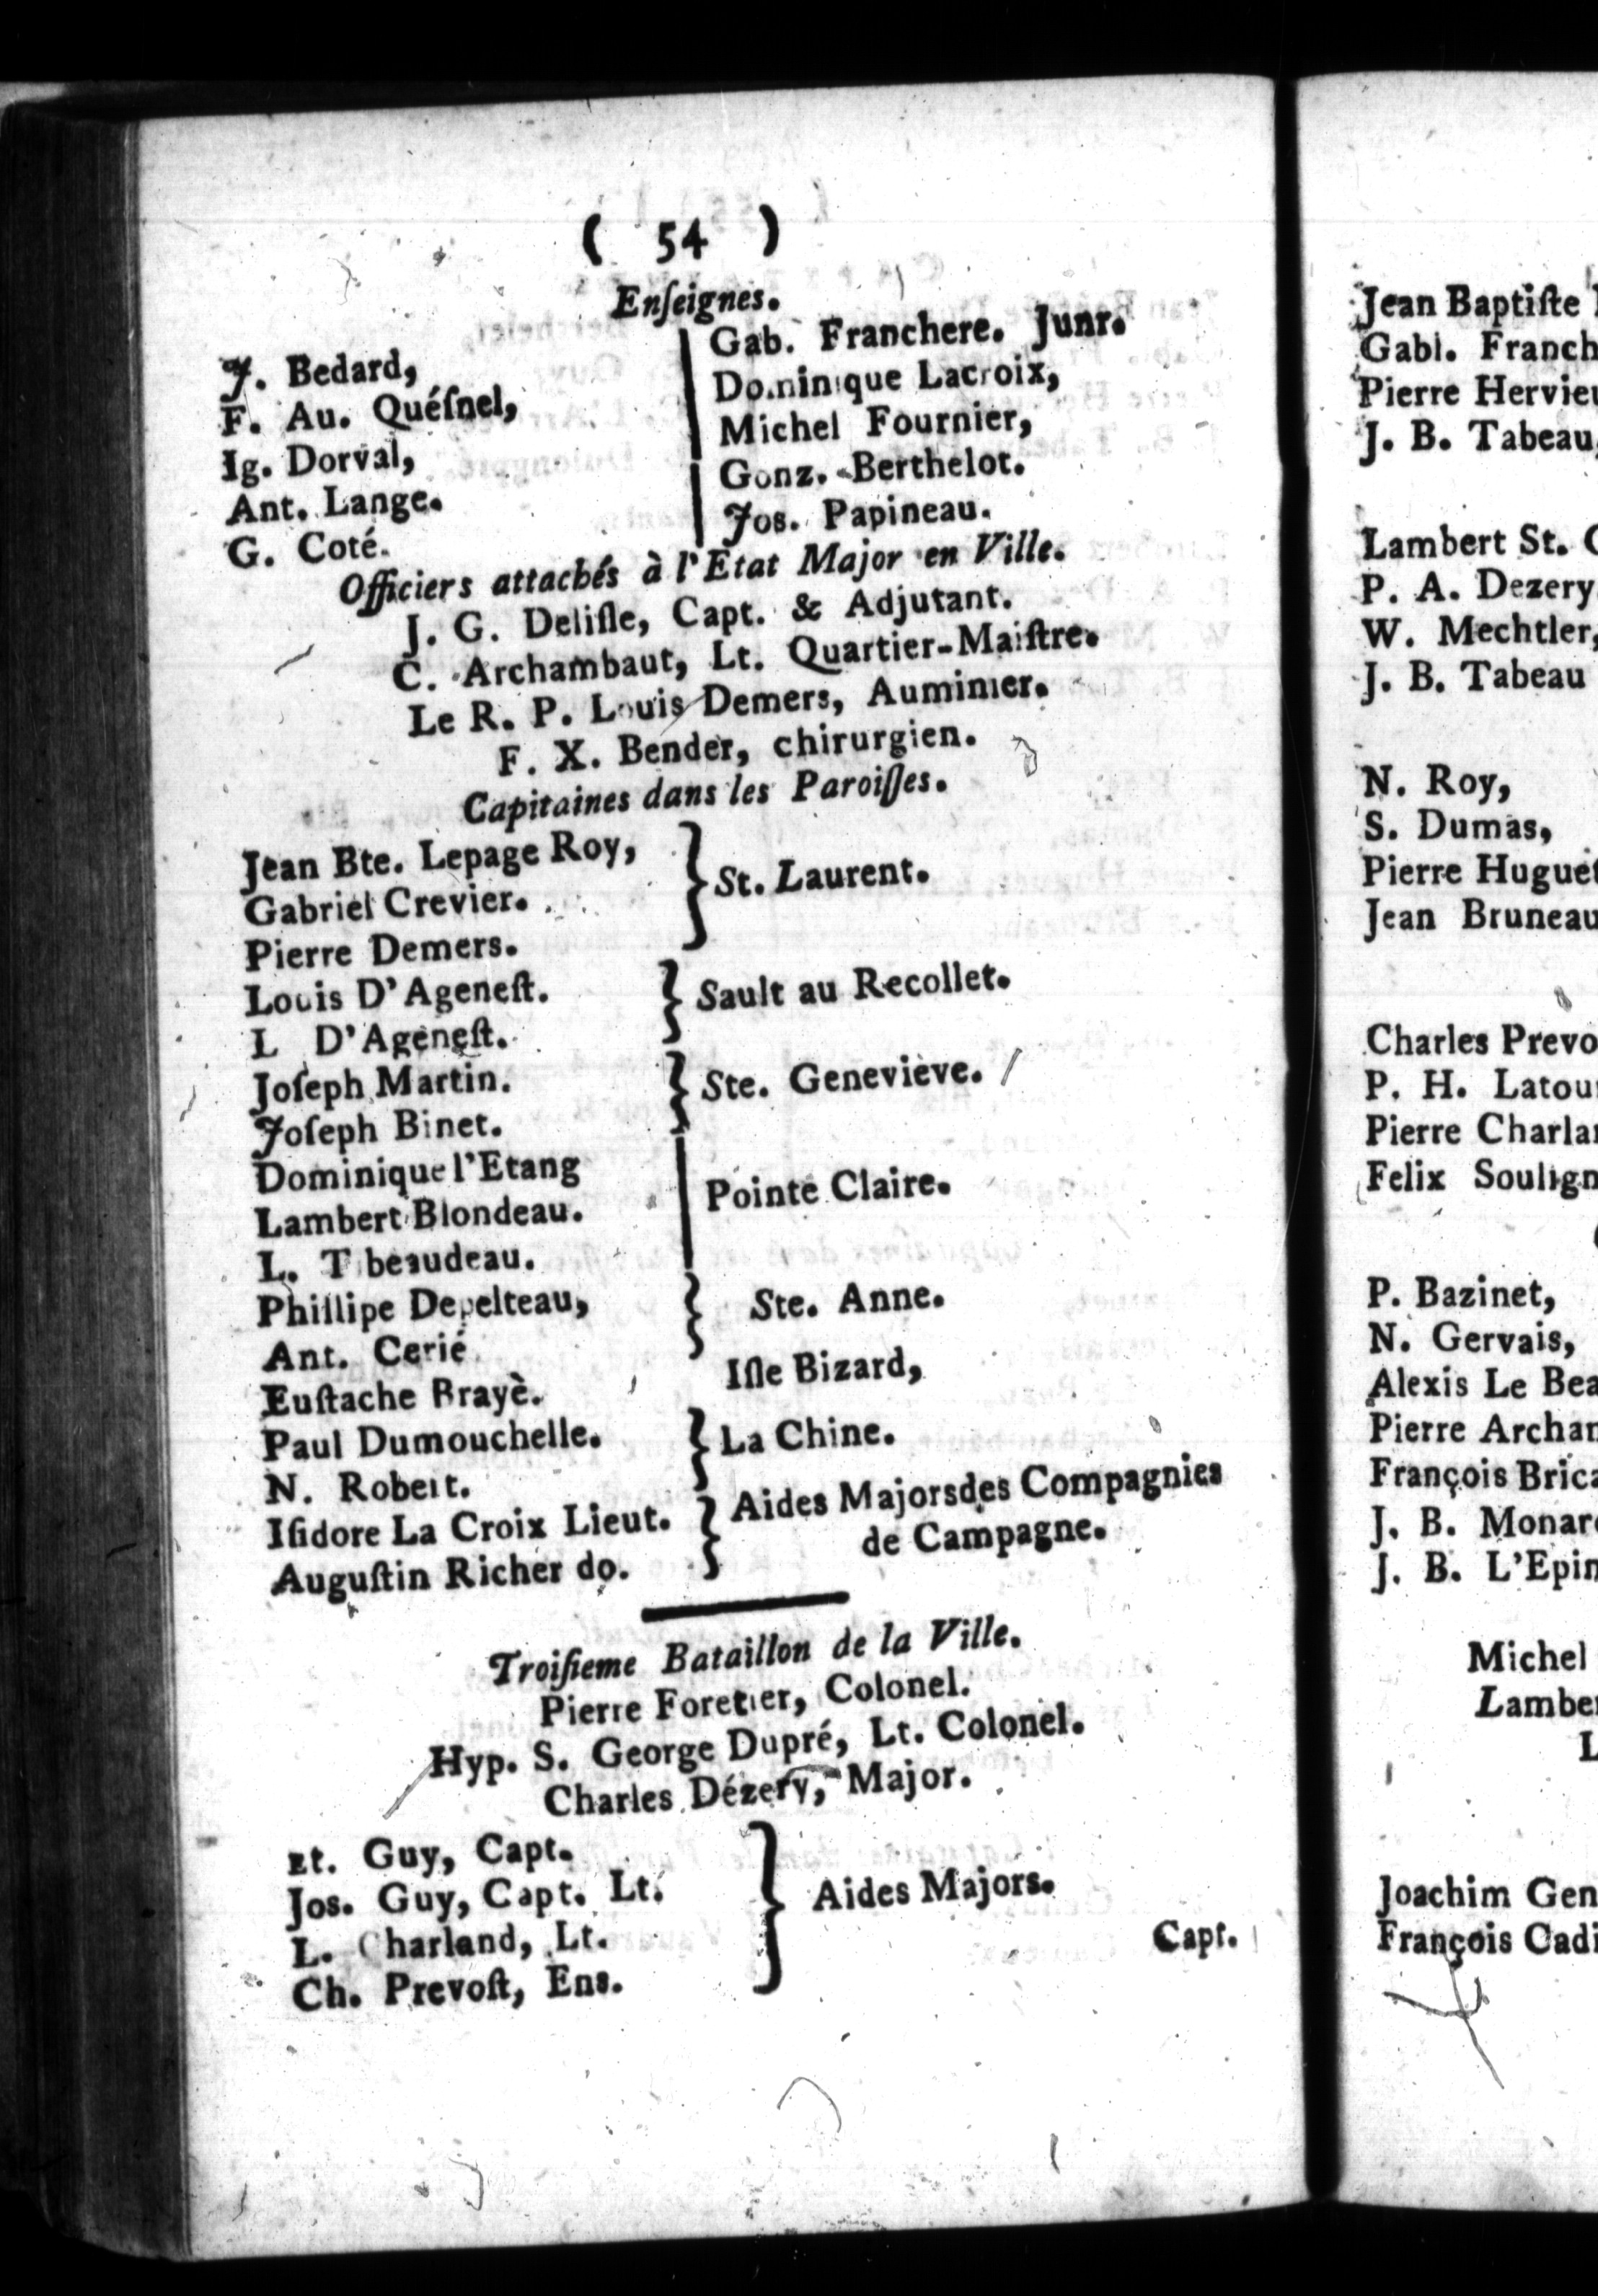 ( 54 )
Enſeignes.
J. Bedard,
F. Au. Quéſnel,
Ig. Dorval,
Ant. Lange.
G. Coté.
Gab. Franchere. Junr.
Dominique Lacroix,
Michel Fournier,
Gonz. Berthelot.
Jos. Papineau.
Officiers attachés à l'Etat Major en Ville.
J. G. Deliſle, Capt. & Adjutant.
C. Archambaut, Lt. Quartier-Maiſtre.
Le R. P. Louis Demers, Auminier.
F. X. Bender, chirurgien.
Capitaines dans les Paroiſſes.
Jean Bte. Lepage Roy,
Gabriel Crevier.
Pierre Demers.
} St. Laurent.
Louis D'Ageneſt.
L D'Ageneſt.
} Sault au Recollet.
Joſeph Martin.
Joſeph Binet.
} Ste. Genevieve.
Dominique l'Etang
Lambert Blondeau.
L. T beaudeau.
| Pointe Claire.
Phillipe Depelteau,
Ant. Cerié
} Ste. Anne.
Euſtache Brayè.
Iſle Bizard,
Paul Dumouchelle.
N. Robert.
} La Chine.
Iſidore La Croix Lieut.
Auguſtin Richer do.
} Aides Majorsdes Compagnies
de Campagne.
Troiſieme Bataillon de la Ville.
Pierre Foretier, Colonel.
Hyp. S. George Dupré, Lt. Colonel.
Charles Dézery, Major.
Et. Guy, Capt.
Jos. Guy, Capt. Lt.
L. Charland, Lt.
Ch. Prevoſt, Ens.
} Aides Majors.
Capt.
Jean Baptiſte
Gabl. Franch
Pierre Hervieu
J. B. Tabeau,
Lambert St.
P. A. Dezery
W. Mechtler,
J. B. Tabeau
N. Roy,
S. Dumas,
Pierre Huguet
Jean Bruneau
Charles Prevo
P. H. Latour
Pierre Charlan
Felix Soulign
P. Bazinet,
N. Gervais,
Alexis Le Bea
Pierre Archam
François Brica
J. B. Monar
J. B. L'Epin
Michel
Lamber
L
Joachim Gen
François Cadi